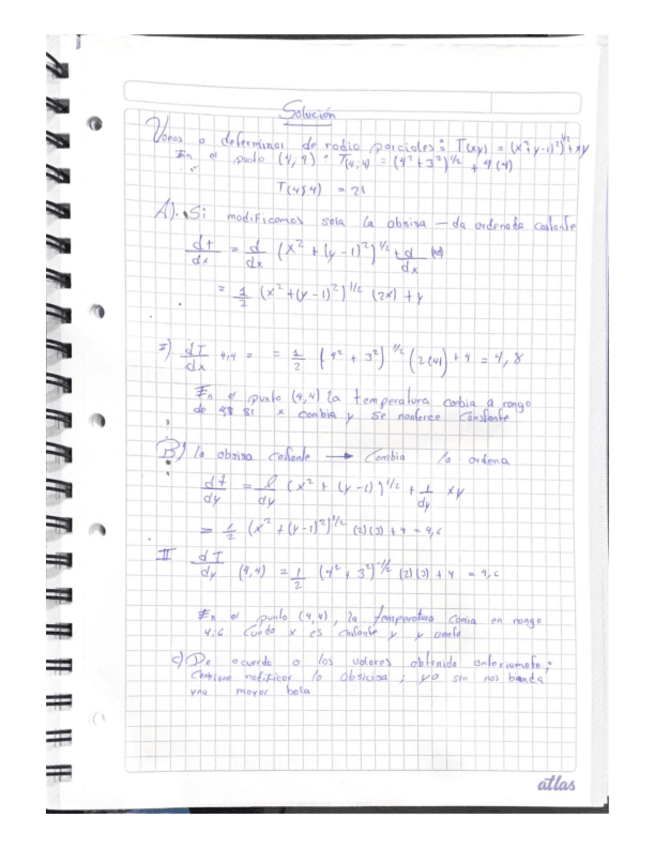 Solución
Vamos a determinar de radio parciales: T(xy) = (x²+y-1)²)^1/2+xy
En el punto (4,4) : T(4,4) = (4²+3²)^1/2 + 4(4)
T(4,4) = 21
A). Si modificamos sola la absisa – da ordenada costante
dt/dx = d/dx (x² + (y-1)²)^1/2 + d/dx
= 1/2 (x²+(y-1)²)^1/2 (2x) + y
I). dT/dx 4,4 = = 1/2 (4² + 3²)^-1/2 (2(4)) + 4 = 4,8
En el punto (4,4) la temperatura canbia a rango
de 4,8 si x canbia y se Constante
B) la absisa costante → Cambia la ordena
dt/dy = d/dy (x² + (y-1))^1/2 + 1/dy xy
= 1/2 (x² + (y-1)²)^-1/2 (2)(3) + 4 = 4,6
II dT/dy (4,4) = 1/2 (4² + 3²)^-1/2 (2)(3) + 4 = 4,6
En el punto (4,4), la temperatura en rango
4,6 x es y y
c) De acuerdo a los valores obtenido anteriomete;
modificar la ; ya nos
una mayor
atlas